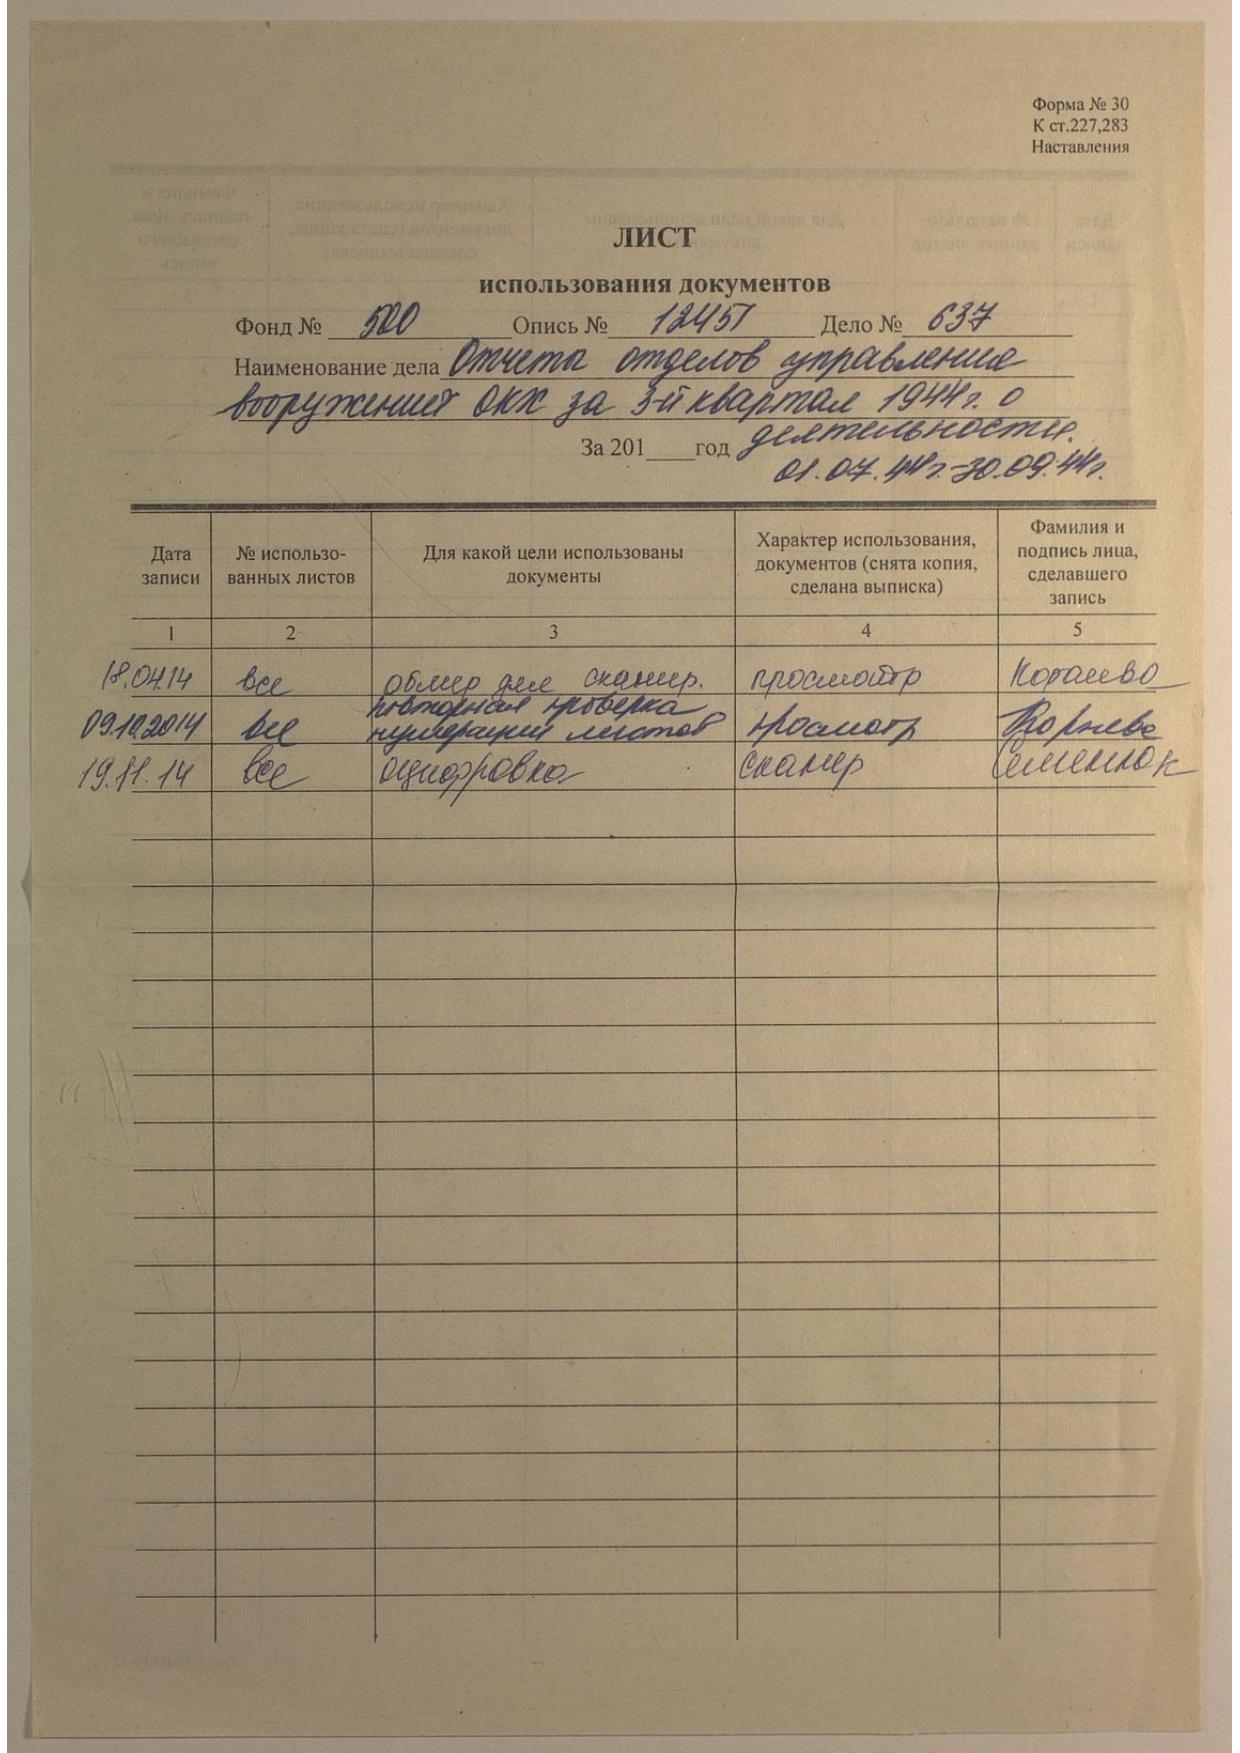 Форма № 30
К ст.227,283
Наставления
ЛИСТ
использования документов
Фонд № 500 Опись № 12451 Дело № 637
Наименование дела Отчета отделов управления
вооружений ОКХ за 3-й квартал 1944г. о
За 201____год деятельности.
01.07.44г.-30.09.44г.
Дата записи № использо-ванных листов Для какой цели использованы документы Характер использования, документов (снята копия, сделана выписка) Фамилия и подпись лица, сделавшего запись
1 2 3 4 5
18.04.14 все обмер для сканир. просмотр
повторная проверка
09.10.2014 все нумерации листов просмотр
19.11.14 все оцифровка сканер Семенюк